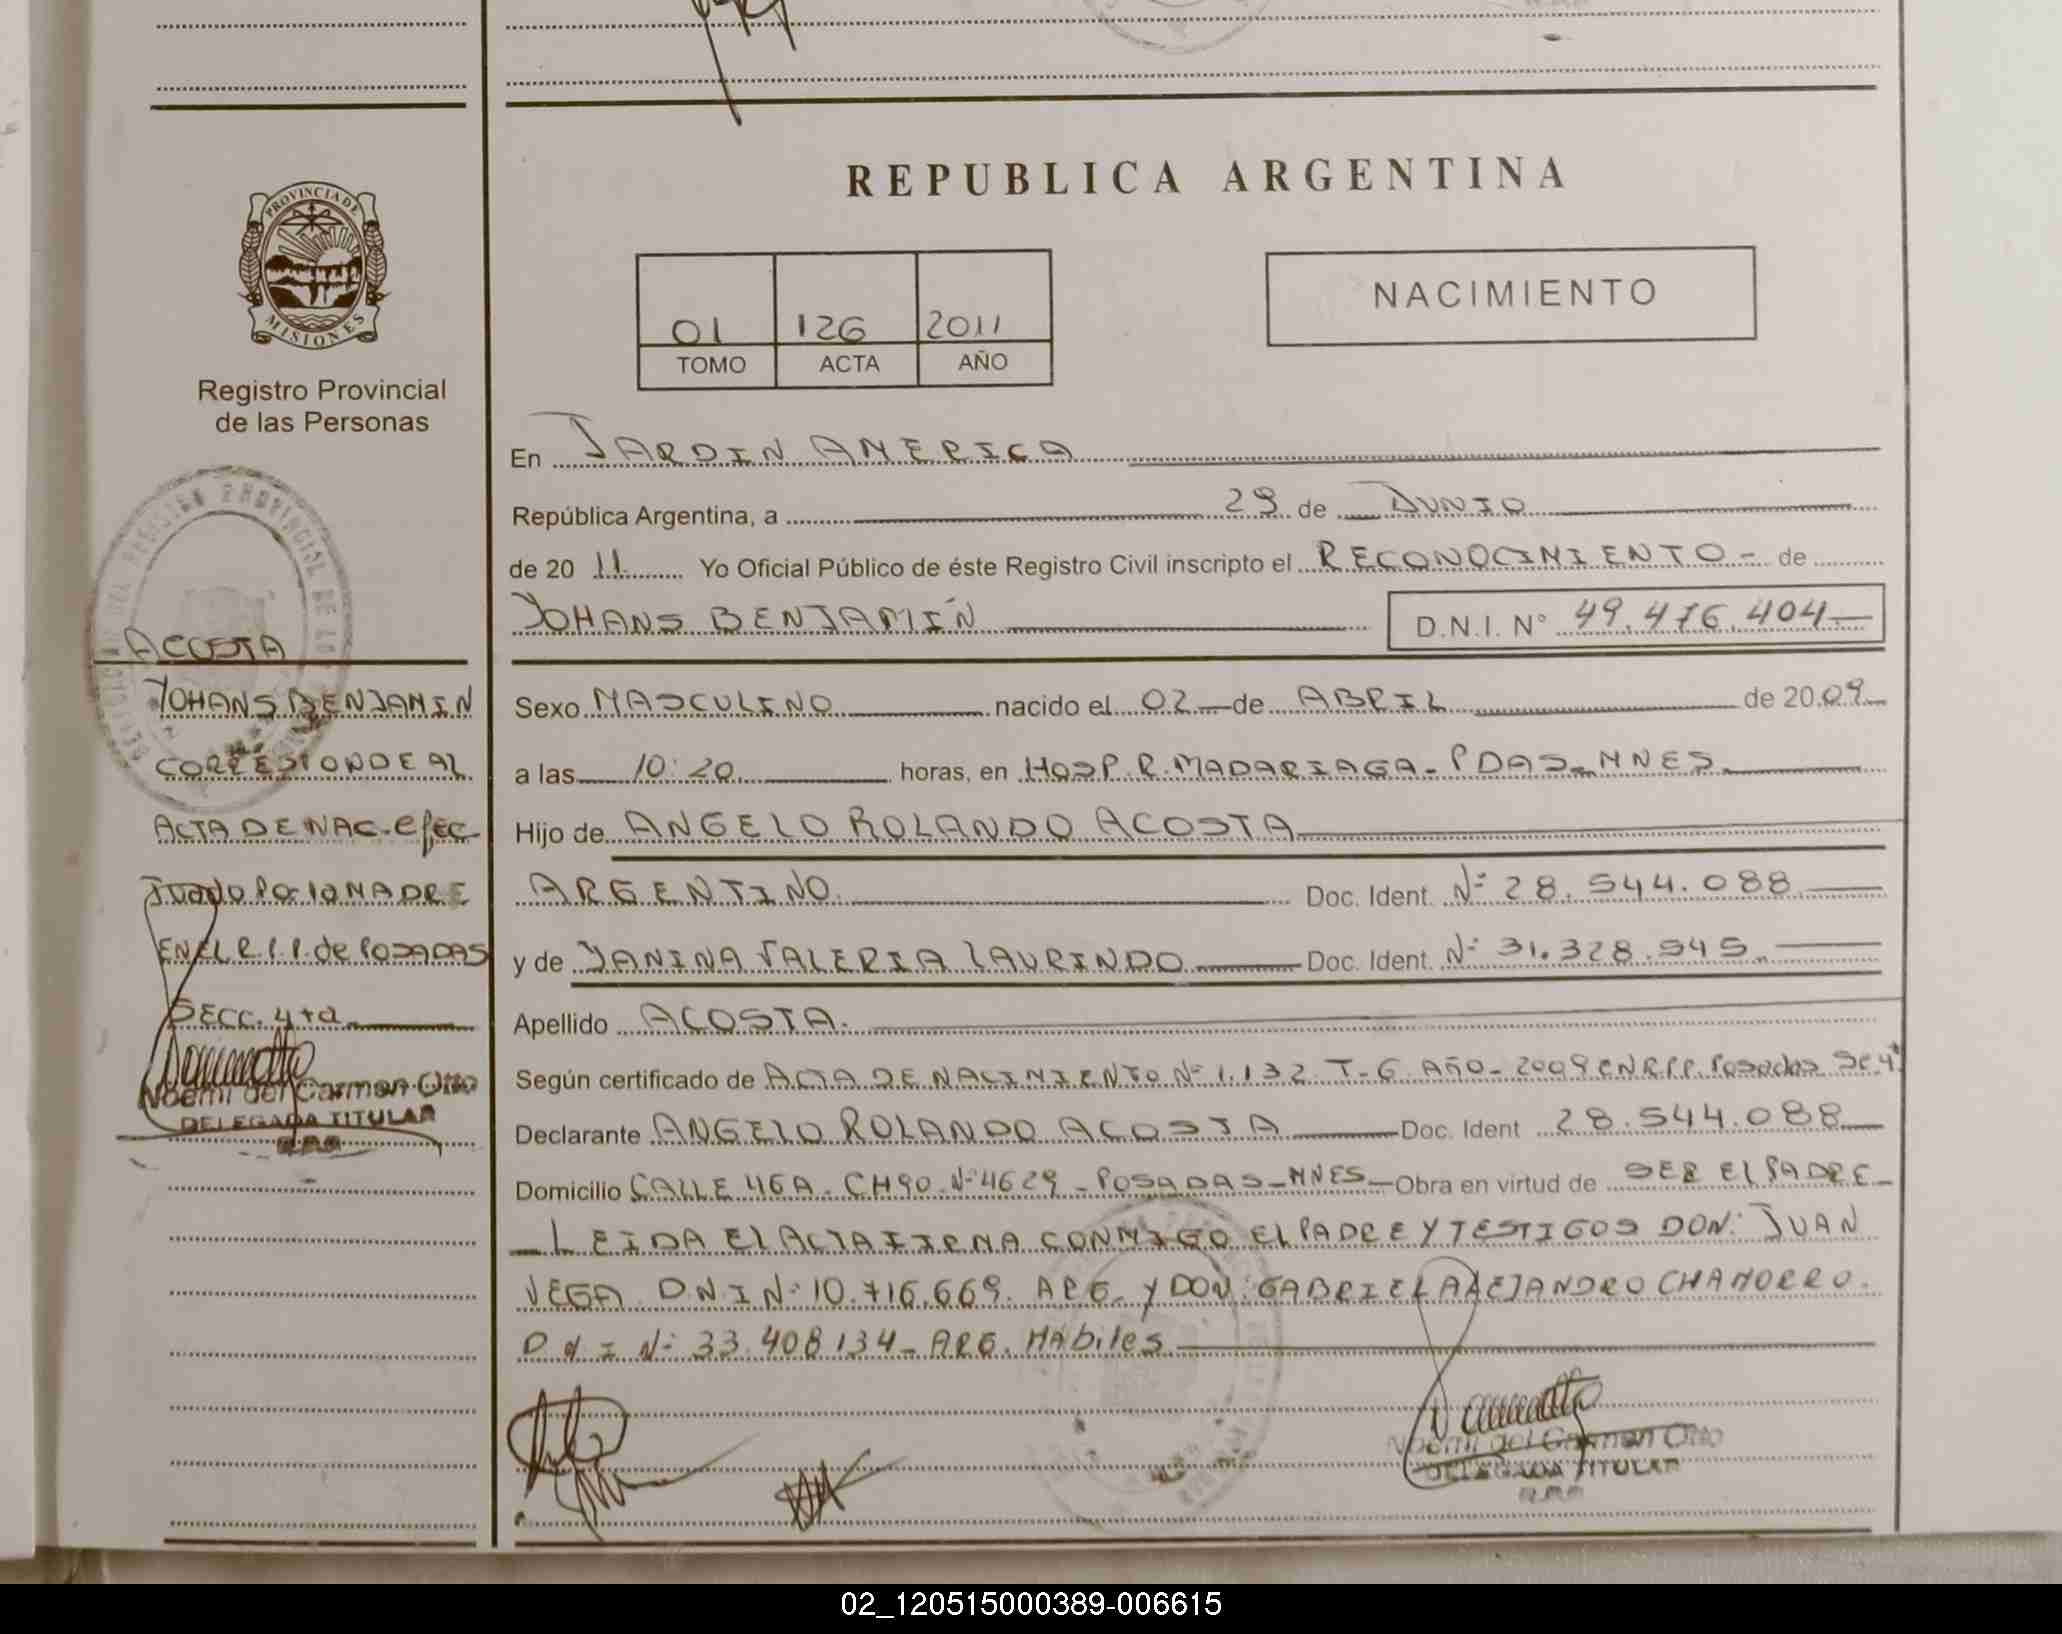 REPUBLICA ARGENTINA
PROVINCIA DE
MISIONES
Registro Provincial
de las Personas
01 126 2011
TOMO ACTA AÑO
NACIMIENTO
En JARDIN AMERICA
República Argentina, a 29 de JUNIO
de 20 11 Yo Oficial Público de éste Registro Civil inscripto el RECONOCIMIENTO - de
YOHANS BENJAMÍN D.N.I. N° 49.476.404.-
Sexo MASCULINO nacido el 02 de ABRIL de 2009
a las 10:20 horas, en HOSP. R. MADARIAGA - PDAS - MNES
Hijo de ANGELO ROLANDO ACOSTA
ARGENTINO. Doc. Ident. Nº 28.544.088
y de YANINA VALERIA LAURINDO Doc. Ident. Nº 31.328.545
Apellido ACOSTA.
Según certificado de ACTA DE NACIMIENTO Nº 1.132 T-6 AÑO-2009 EN R.P.P. Posadas Sc. 4ª
Declarante ANGELO ROLANDO ACOSTA Doc. Ident 28.544.088
Domicilio CALLE 46A. CH 90. Nº 4629 - POSADAS - MNES - Obra en virtud de SER EL PADRE -
LEIDA EL ACTA FIRMA CONMIGO EL PADRE Y TESTIGOS DON: JUAN
VEGA. D.N.I Nº 10.716.669. ARG. Y DON: GABRIEL ALEJANDRO CHAMORRO.
D N I Nº 33.408.134 - ARG. HÁbiles
Noemi del Carmen Otto
DELEGADA TITULAR
R.P.P.
ACOSTA
YOHANS BENJAMIN
CORRESPONDE AL
ACTA DE NAC. efec-
TUADO POR lA MADRE
EN EL R.P.P. de POSADAS
SECC. 4ta
Noemi del Carmen Otto
DELEGADA TITULAR
R.P.P.
02_120515000389-006615